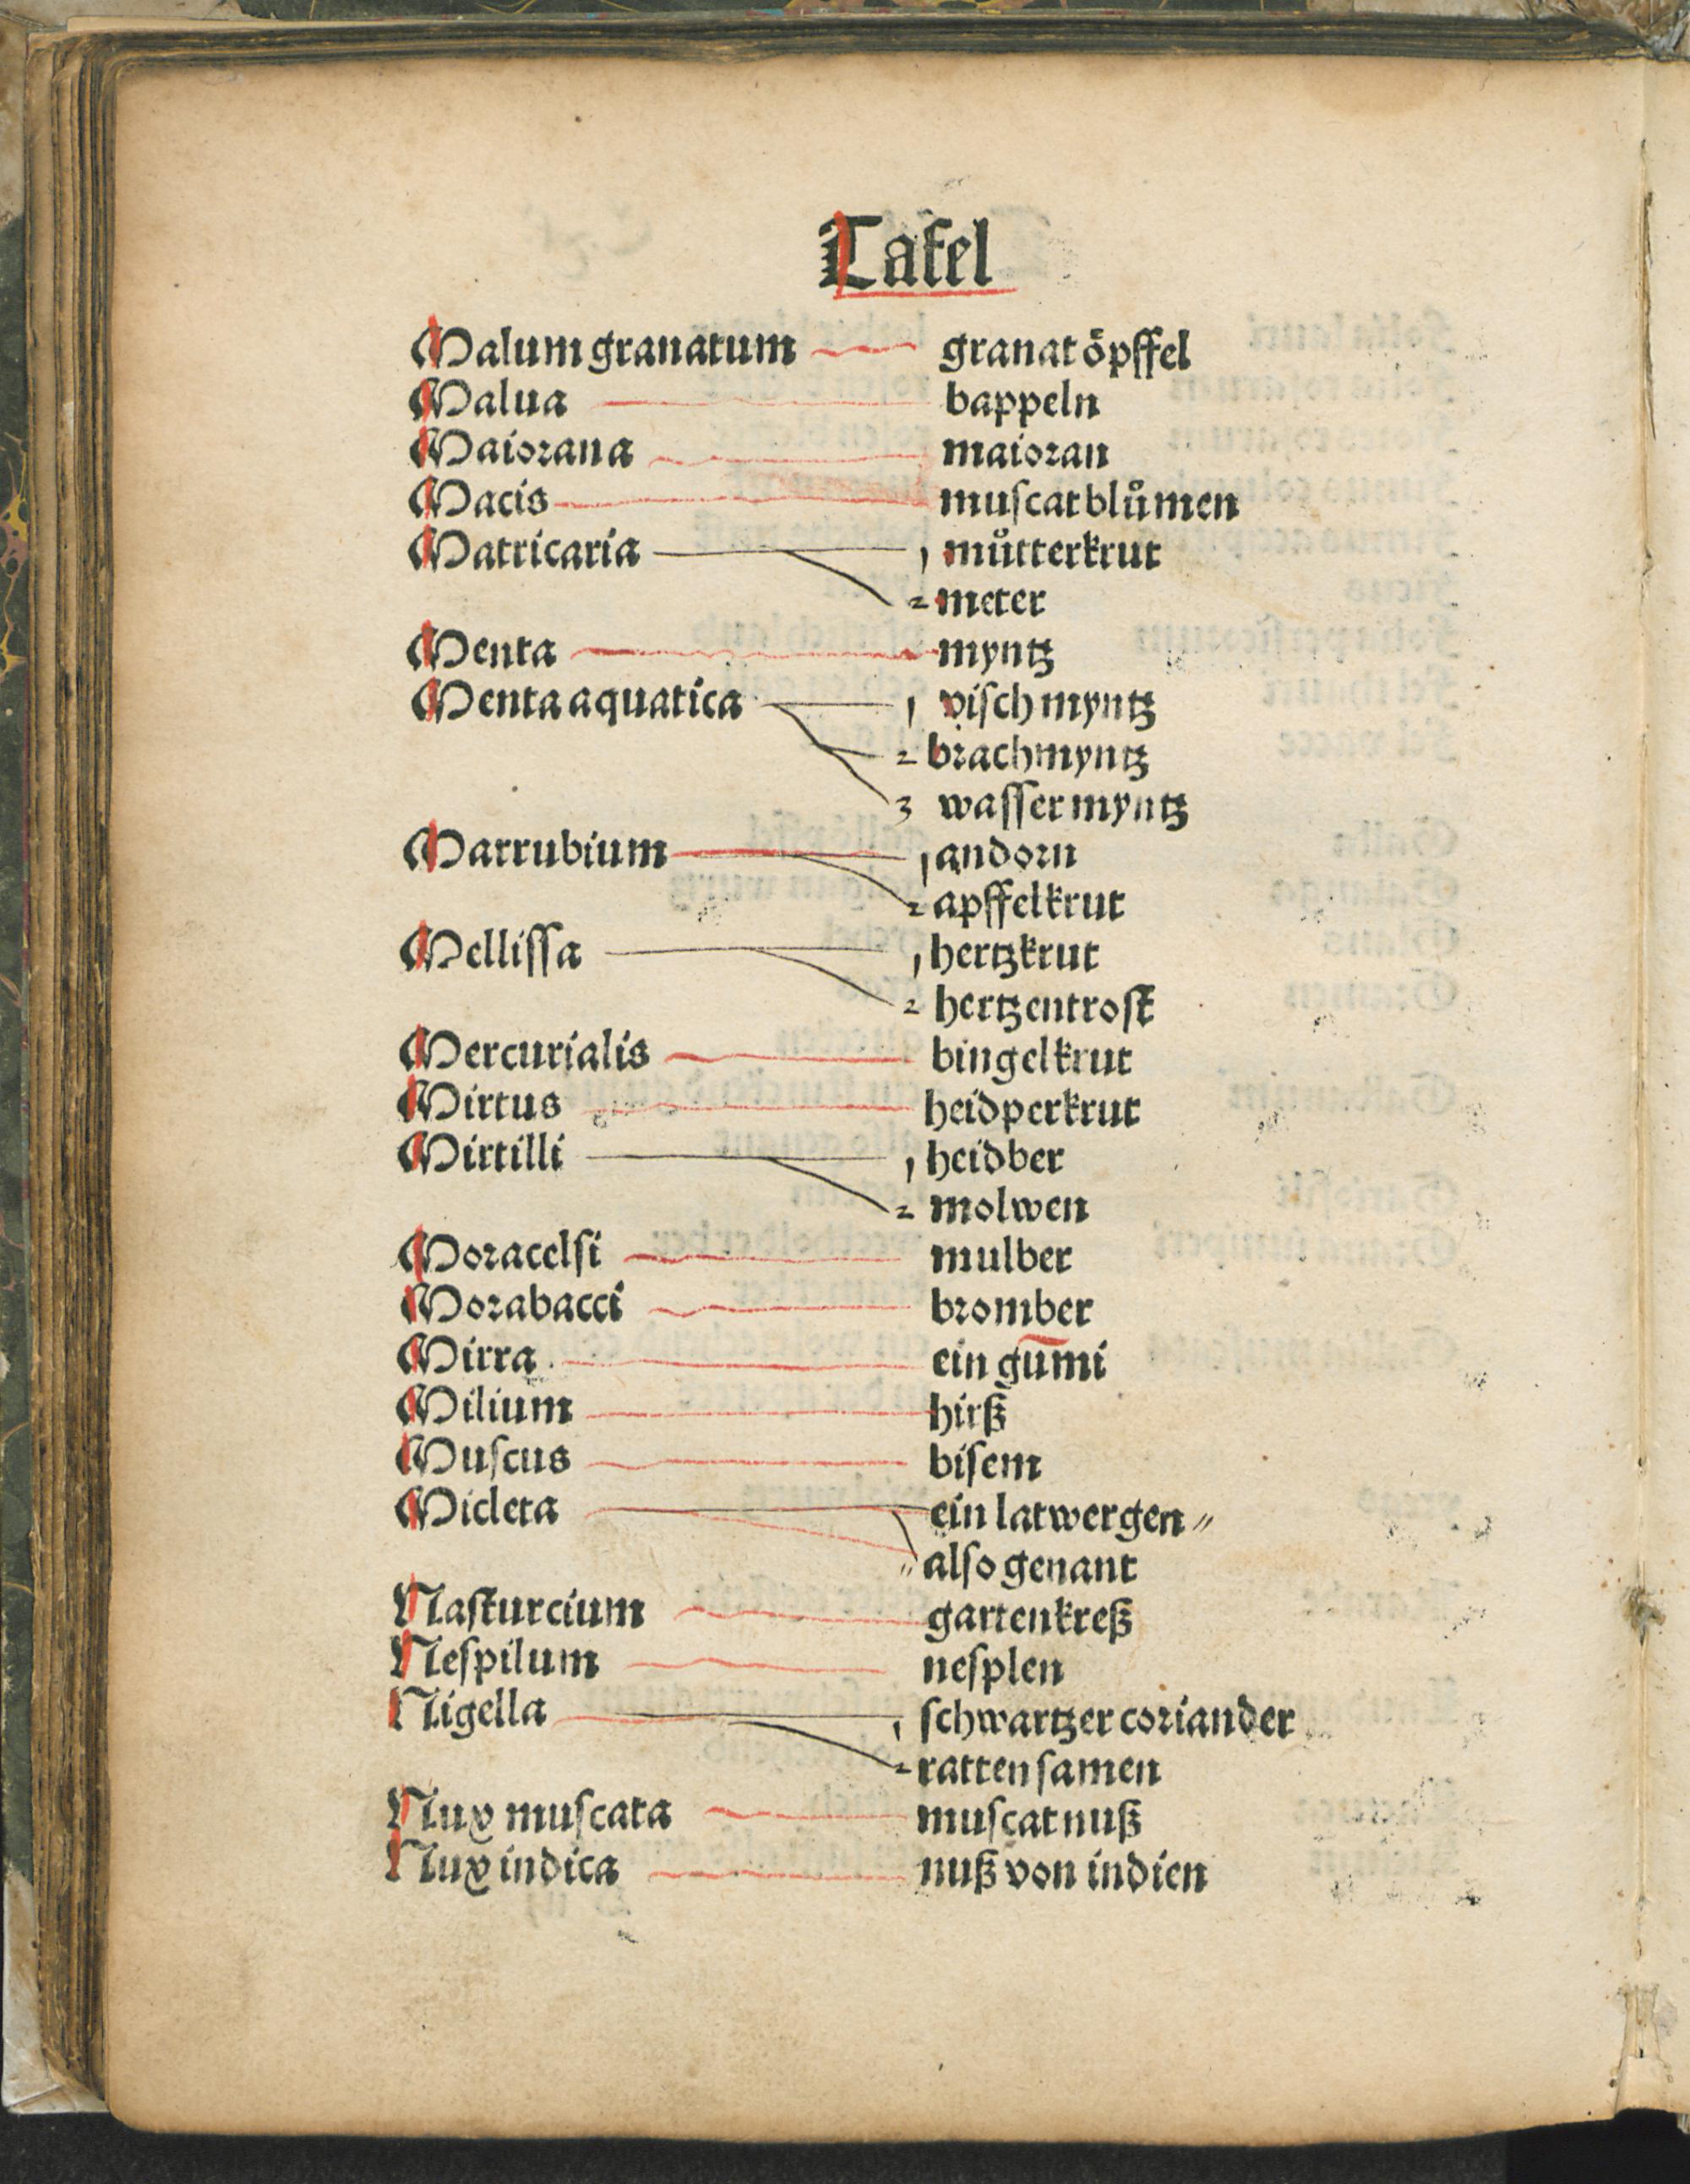 Tafel
Malum granatum granat öpffel
Malua bappeln
Maiorana maioran
Macis muſcat blůmen
Matricaria 1 můtterkrut
2 meter
Menta myntz
Menta aquatica 1 viſch myntz
2 brachmyntz
3 waſſer myntz
Marrubium 1 andorn
2 apffelkrut
Melliſſa 1 hertzkrut
2 hertzentroſt
Mercurialis bingelkrut
Mirtus heidperkrut
Mirtilli 1 heidber
2 molwen
Moracelſi mulber
Morabacci bromber
Mirra ein gūmi
Milium hirß
Muſcus biſem
Micleta ein latwergen〃
〃alſo genant
Naſturcium gartenkreß
Neſpilum neſplen
Nigella 1 ſchwartzer coriander
2 ratten ſamen
Nux muſcata muſcat nuß
Nux indica nuß von indien